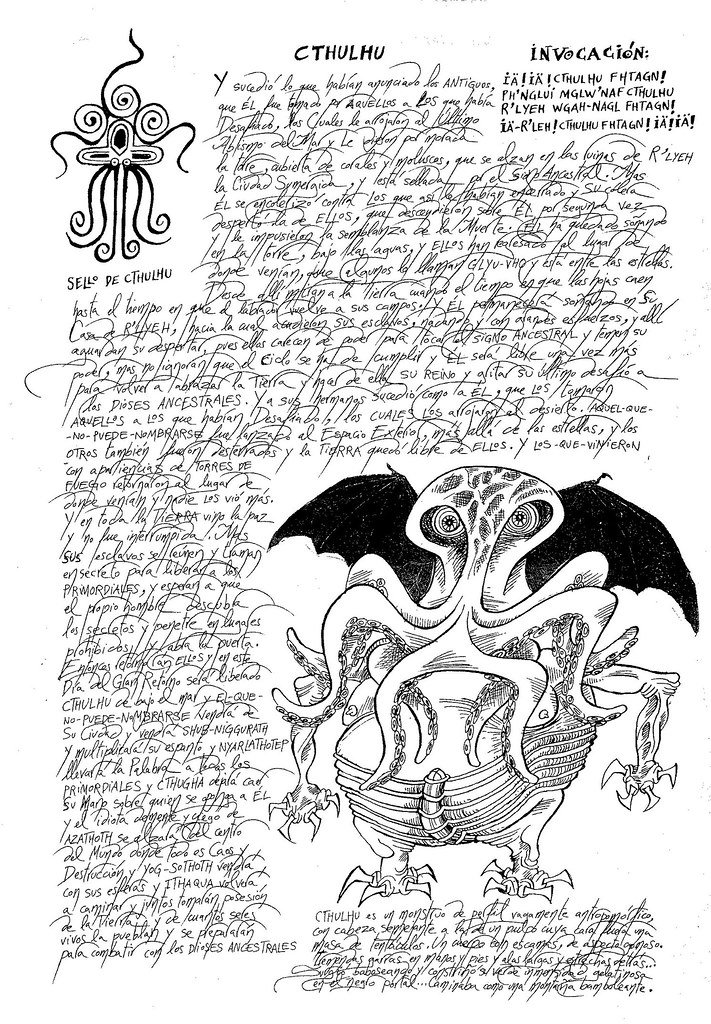 CTHULHU
Y sucedió lo que habían anunciado los ANTIGUOS,
que ÉL fue tomado por AQUELLOS a LOS que había
Desafiado, los Cuales le arrojaron al Último
Abismo del Mar y Le dieron por morada
la Torre, cubierta de corales y moluscos, que se alzan en las ruinas de R'LYEH
la Ciudad Sumergida, y está sellada por el Signo Ancestral. Mas
ÉL se encolerizó contra LOS que así le habían encerrado y SU cólera
despertó la de ELLOS, que descendieron sobre ÉL por segunda vez
y le impusieron la semblanza de la Muerte. ÉL ha quedado soñando
en la Torre, bajo las aguas, y ELLOS han regresado al lugar de
donde venían, que algunos la llaman GLYU-VHO y está entre las estrellas.
Desde allí miran a la Tierra cuando el tiempo en que las hojas caen
hasta el tiempo en que el labrador vuelve a sus campos. Y ÉL permanecerá soñando en Su
Casa de R'LYEH, hacia la cual acudieron SUS esclavos, nadando y con grandes esfuerzos, y allí
aguardan su despertar, pues ellos carecen de poder para tocar el SIGNO ANCESTRAL y temen su
poder, mas no ignoran que el Ciclo se ha de cumplir y ÉL será libre una vez más
para volver a abrazar la Tierra y hacer de ella SU REINO y gritar su último desafío a
los DIOSES ANCESTRALES. Y a sus hermanos sucedió como a ÉL, que LOS tomaron
AQUELLOS a LOS que habían Desafiado, los CUALES LOS arrojaron al desierto. AQUEL-QUE-
-NO-PUEDE-NOMBRARSE fue lanzado al Espacio Exterior, más allá de las estrellas, y los
OTROS también fueron desterrados y la TIERRA quedó libre de ELLOS. Y LOS-QUE-VINIERON
con apariencias de TORRES DE
FUEGO retornaron al lugar de
donde venían y nadie LOS vio más.
Y en toda la TIERRA vino la paz
y no fue interrumpida. Mas
SUS esclavos se reúnen y traman
en secreto para liberar a los
PRIMORDIALES, y esperan a que
el propio hombre descubra
los secretos y penetre en lugares
prohibidos, y abra la puerta.
Entonces retornarán ELLOS y en este
Día del Gran Retorno será liberado
CTHULHU de bajo el mar y EL-QUE-
NO-PUEDE-NOMBRARSE vendrá de
Su Ciudad y vendrá SHUB-NIGGURATH
y multiplicará su espanto y NYARLATHOTEP
llevará la Palabra a todos los
PRIMORDIALES y CTHUGHA dejará caer
su Mano sobre quien se oponga a ÉL
y el idiota demente y ciego de
AZATHOTH se alzará del centro
del Mundo donde todo es Caos y
Destrucción y YOG-SOTHOTH vendrá
con sus esferas y ITHAQUA volverá
a caminar y juntos tomarán posesión
de la Tierra y de cuantos seres
vivos la pueblan y se prepararán
para combatir con los DIOSES ANCESTRALES
INVOCACIÓN:
ÏÄ! ÏÄ! CTHULHU FHTAGN!
PH'NGLUI MGLW'NAF CTHULHU
R'LYEH WGAH-NAGL FHTAGN!
ÏÄ-R'LEH! CTHULHU FHTAGN! ÏÄ! ÏÄ!
SELLO DE CTHULHU
CTHULHU es un monstruo de portal vagamente antropomórfico,
con cabeza semejante a la de un pulpo cuya cara fuera una
masa de tentáculos. Un cuerpo con escamas, de aspecto gomoso.
Tremendas garras en manos y pies y alas largas y estrechas detrás...
Surgió babeseando y constriñó su verde inmensidad gelatinosa
en el negro portal... Caminaba como una montaña bamboleante.